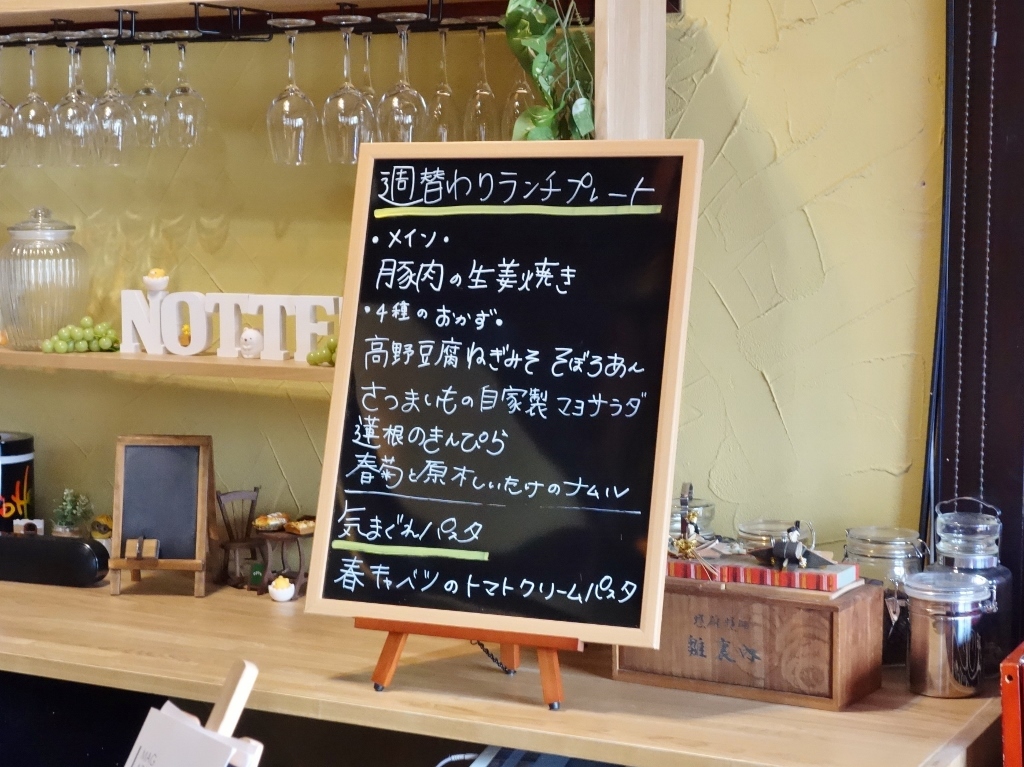 週替わりランチプレート
・メイン・
豚肉の生姜焼き
・4種のおかず・
高野豆腐ねぎみそ そぼろあん
さつまいもの自家製マヨサラダ
蓮根のきんぴら
春菊と原木しいたけのナムル
気まぐれパスタ
春キャベツのトマトクリームパスタ
NOTTE
MAG